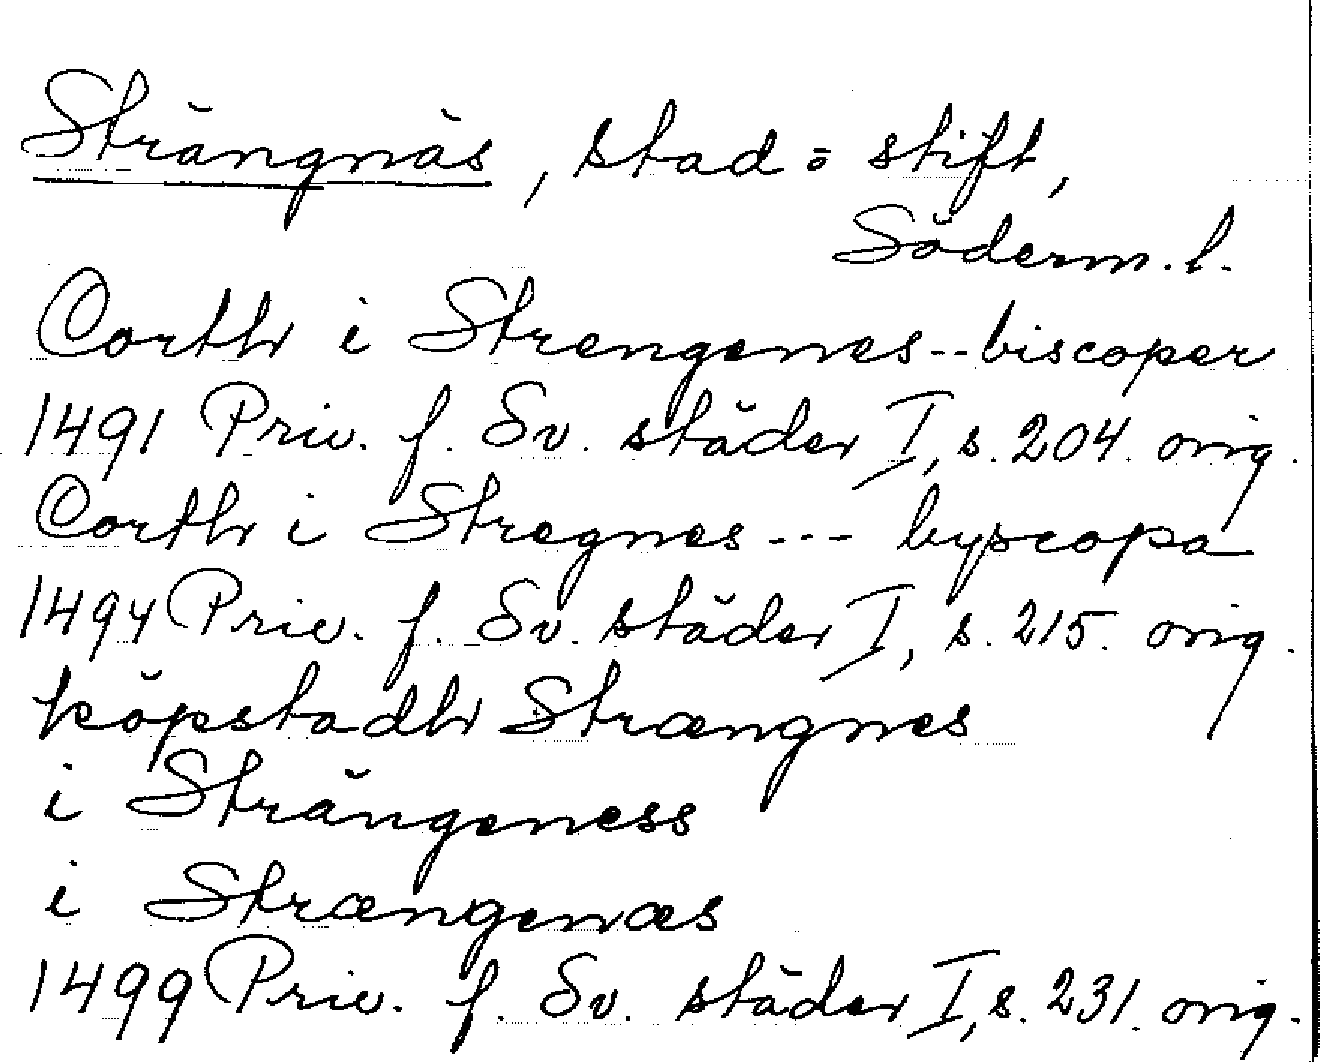 Strängnäs, stad o stift,
Söderm. l.
Corth i Strengenes -- biscoper
1491 Priv. f. Sv. städer I, s. 204. orig.
Corth i Stregnes --- byscopa
1494 Priv. f. Sv. städer I, s. 215. orig.
köpstadh Strængnes
i Strängeness
i Strængenæs
1499 Priv. f. Sv. städer I, s. 231. orig.